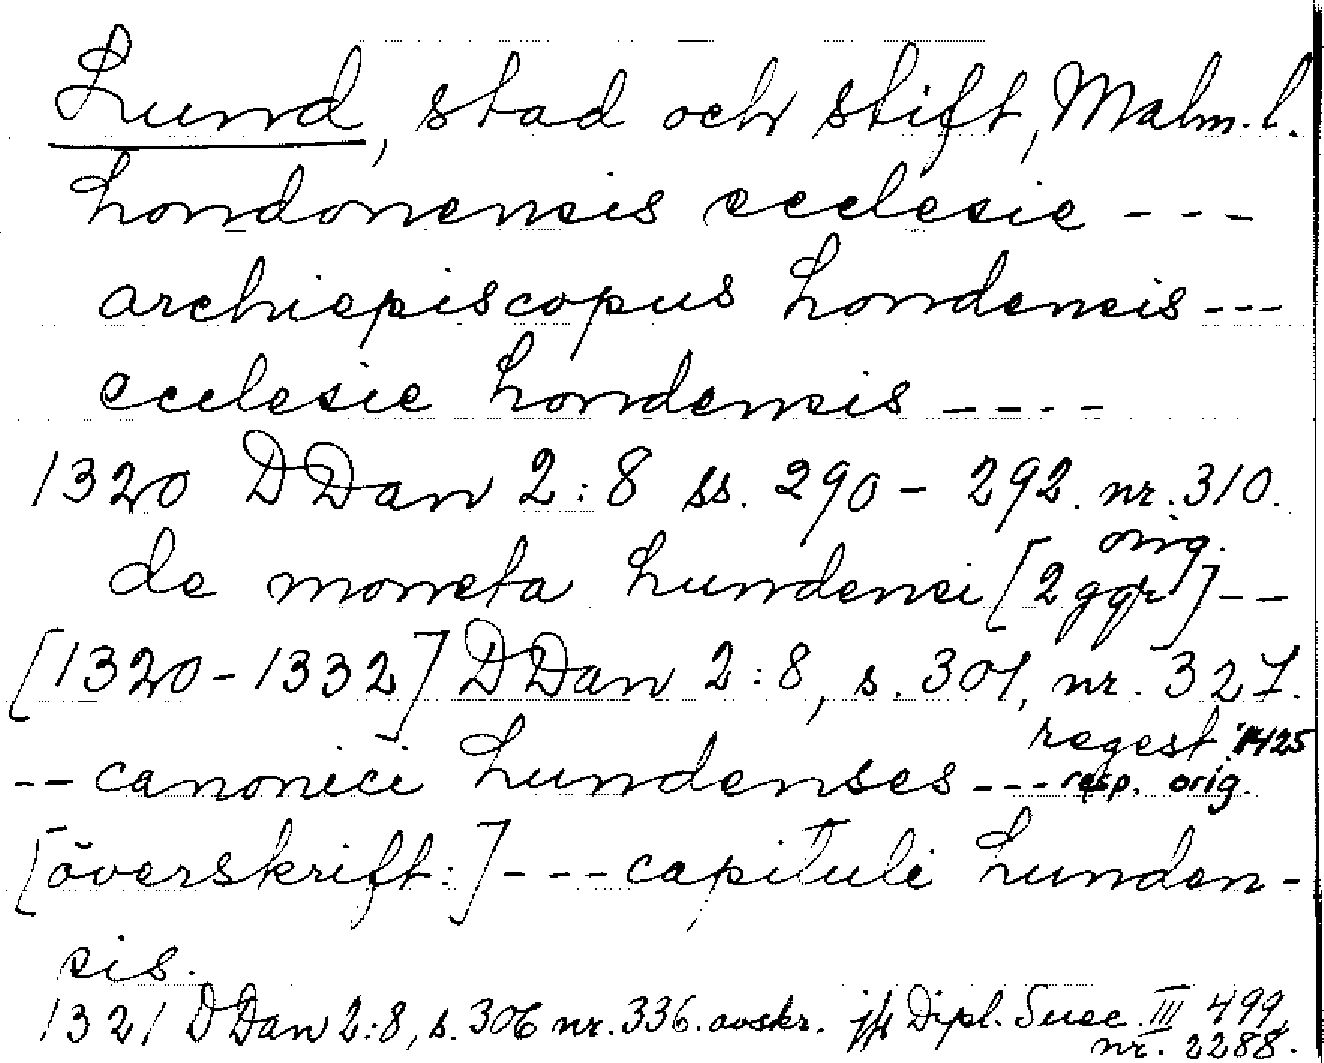 Lund, stad och stift, Malm. l.
Londonensis ecclesie - - -
archiepiscopus Londensis - - -
ecclesie Londensis - - - -
1320 DDan 2:8 ss. 290 - 292. nr. 310.
orig.
de moneta Lundensi [2 ggr] - -
[1320-1332] DDan 2:8, s. 301, nr. 327.
regest 1425
- - canonici Lundenses - - - resp. orig.
[överskrift:] - - - capituli Lunden-
sis.
1321 DDan 2:8, s. 306 nr. 336. avskr. jfr Dipl. Suec. III 499,
nr. 2288.